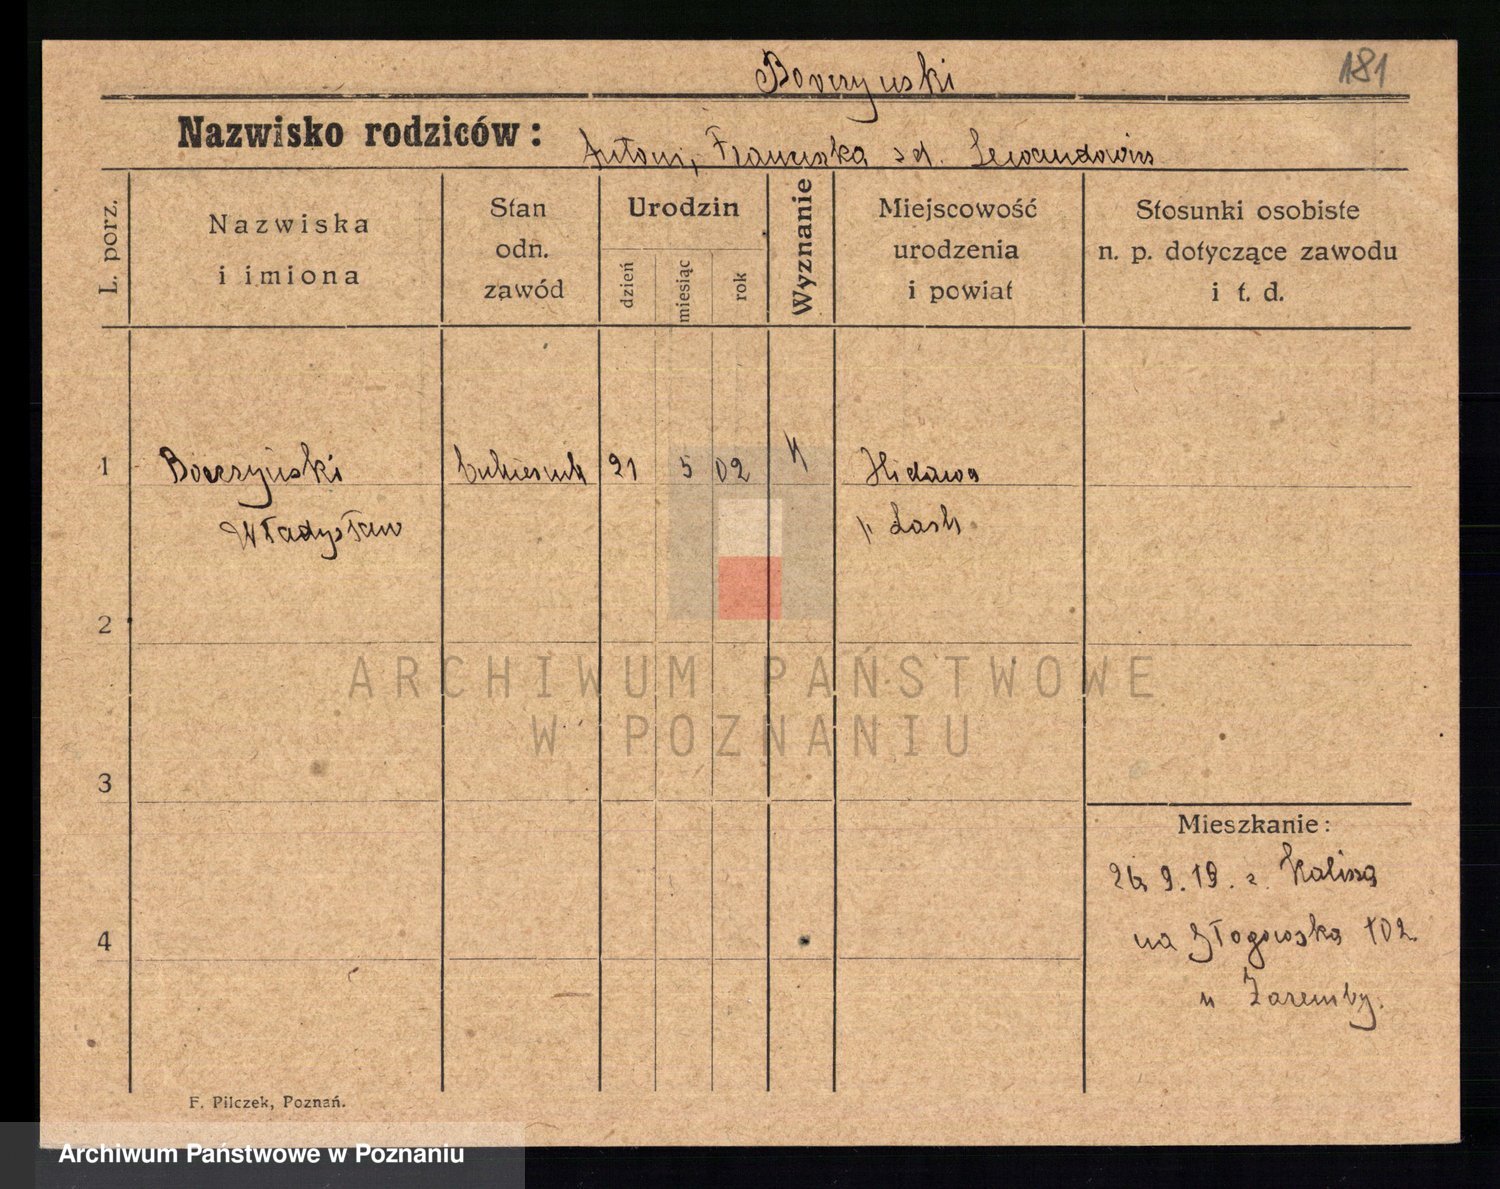 181
Borczyński
Nazwisko rodziców: Antoni, Franciszka zd.
L. porz.
Nazwiska
i imiona
Stan
odn.
zawód
Urodzin
dzień
miesiąc
rok
Wyznanie
Miejscowość
urodzenia
i powiat
Stosunki osobiste
n. p. dotyczące zawodu
i t. d.
1 21 5 02
Władysław
p. Lask
2
3
4
Mieszkanie:
26.9.19. z Kalisza
na Głogowska 102
u Zaremby.
F. Pilczek, Poznań.
ARCHIWUM PAŃSTWOWE
W POZNANIU
Archiwum Państwowe w Poznaniu